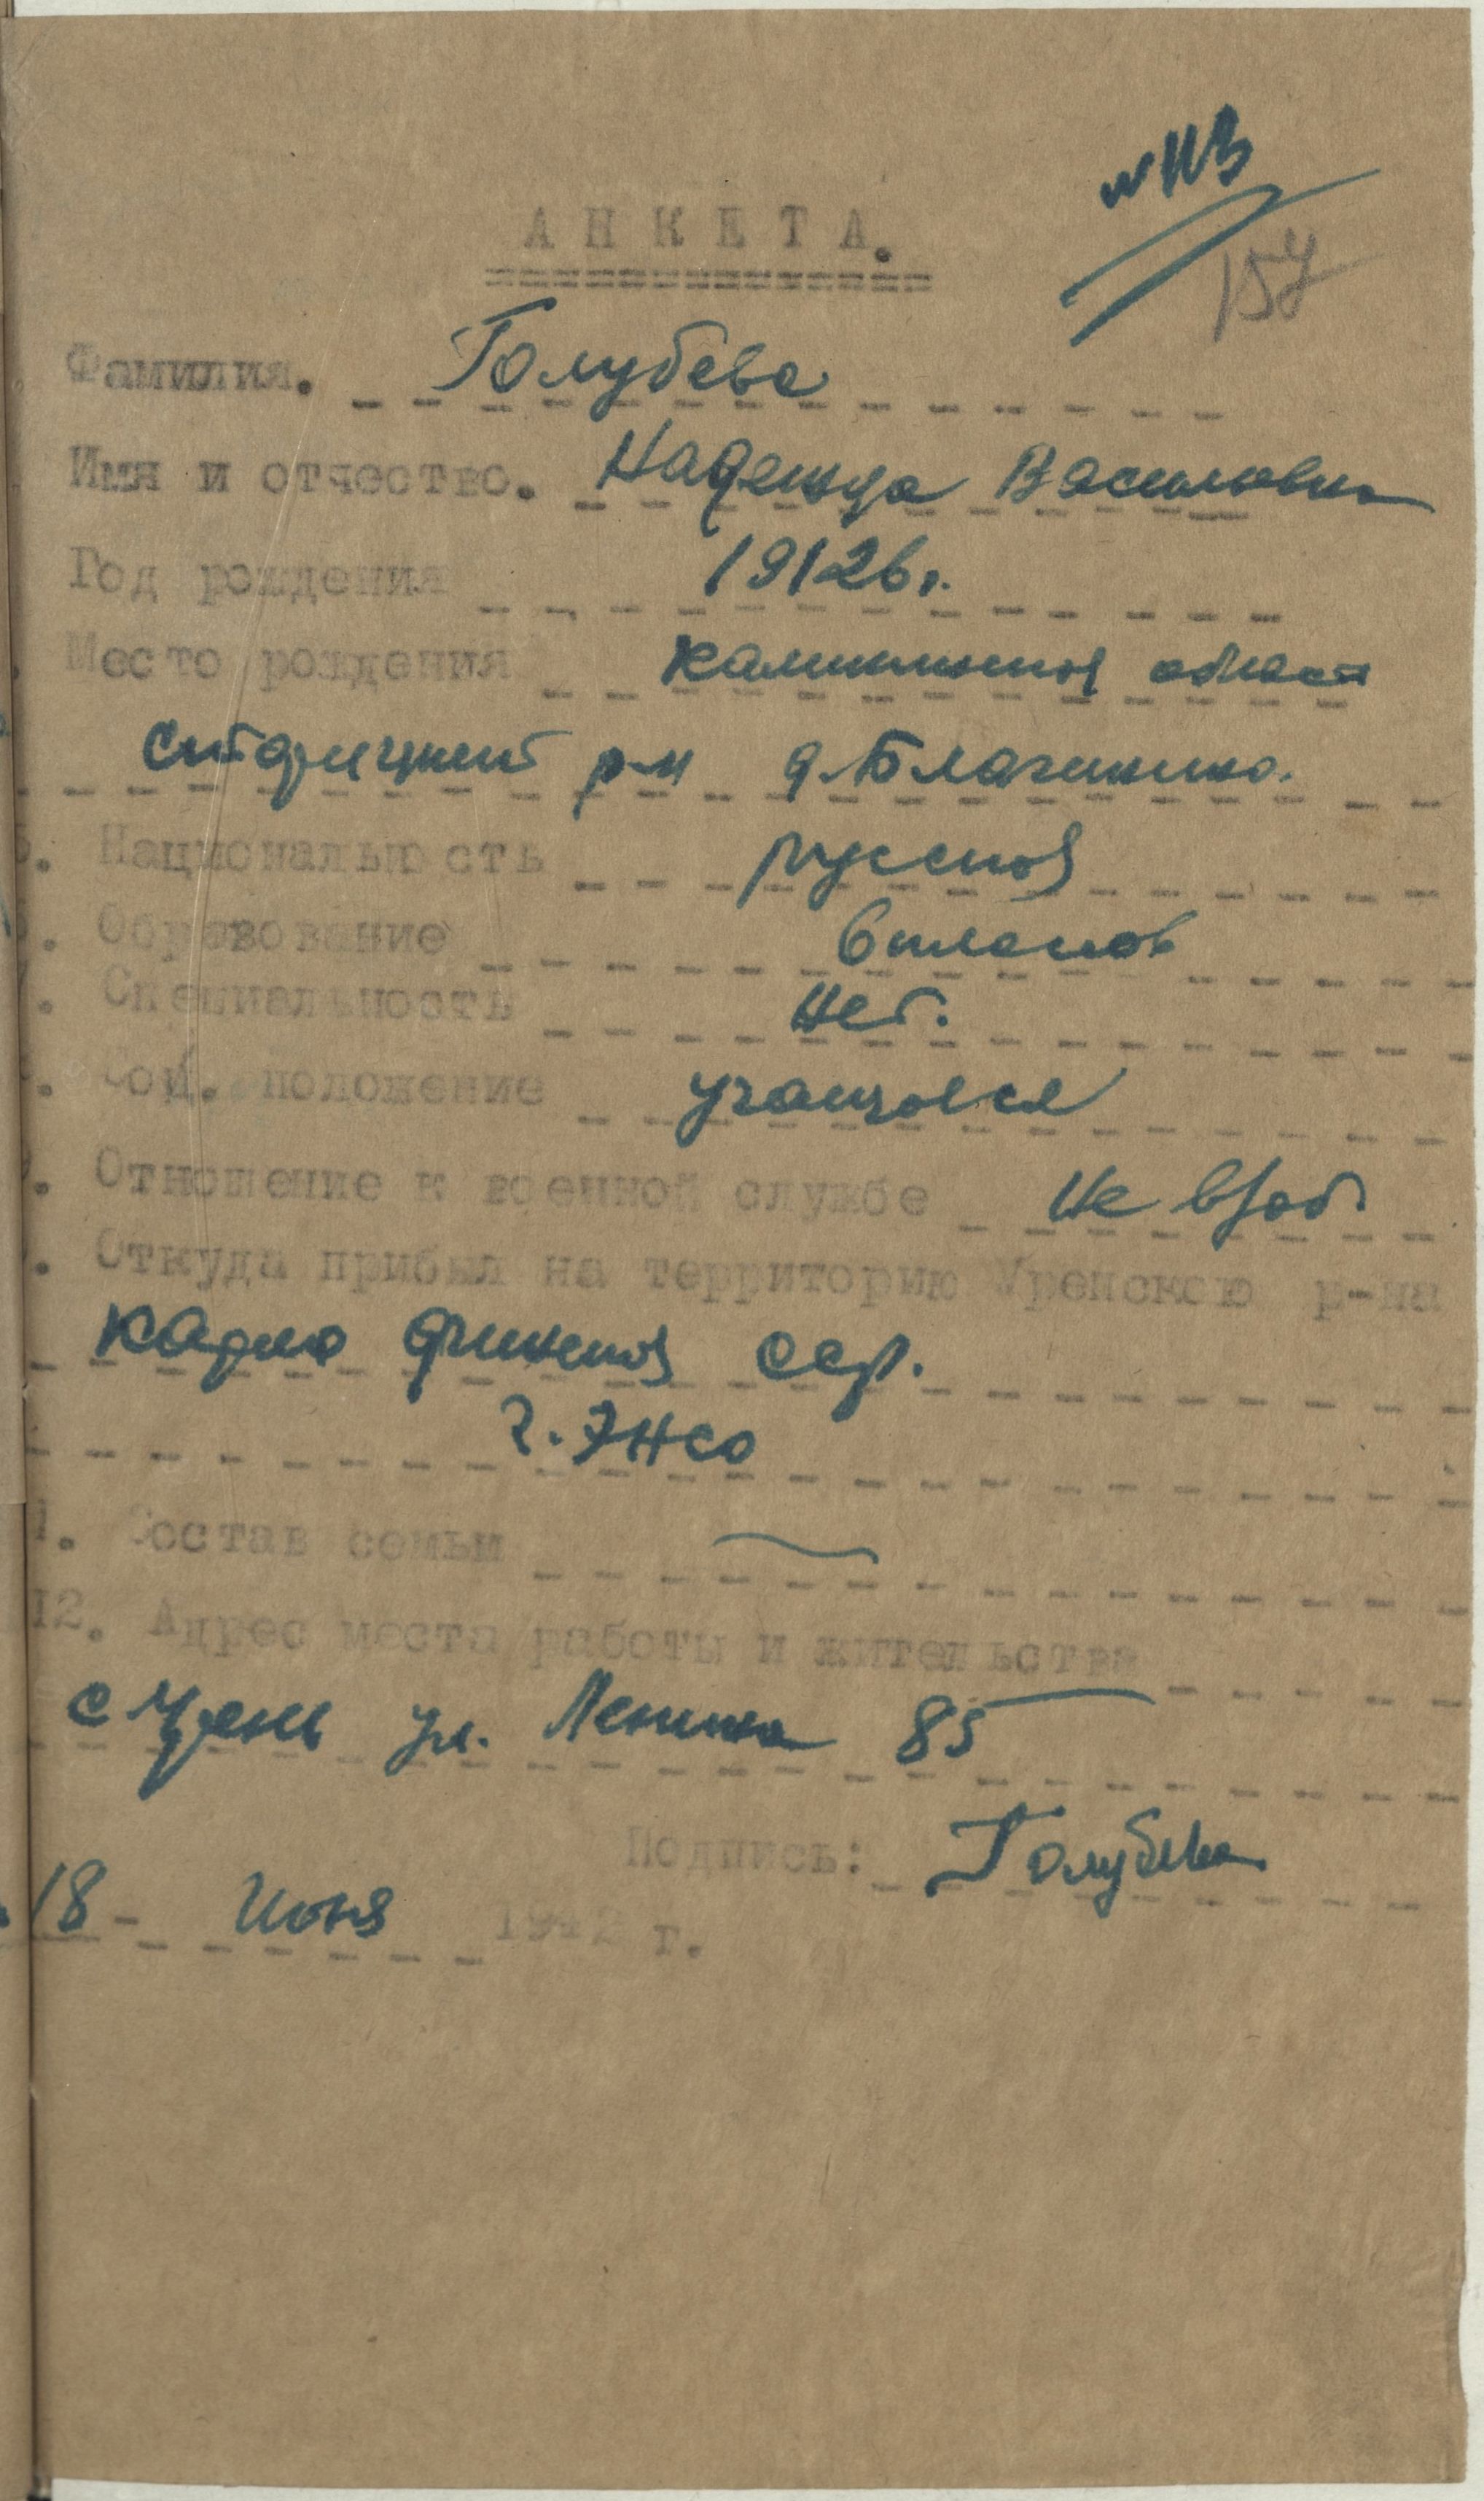 № 113
157
АНКЕТА.
Фамилия. Голубева
Имя и отчество. Надежда Васильевна
Год рождения 1926 г.
Место рождения Калининской области
Старицкий р-н д.
Национальность русской
Образование 6 классов
Специальность Нет.
Соц. положение учащаеся
Отношение к военной службе Не взоб.
Откуда прибыл на территорию Уренского р-на
Карло финской сср.
г. Энсо
Состав семьи
12. Адрес места работы и жительства
с Урень ул. Ленина 85
Подпись: Голубева
18 - Июня 1942 г.